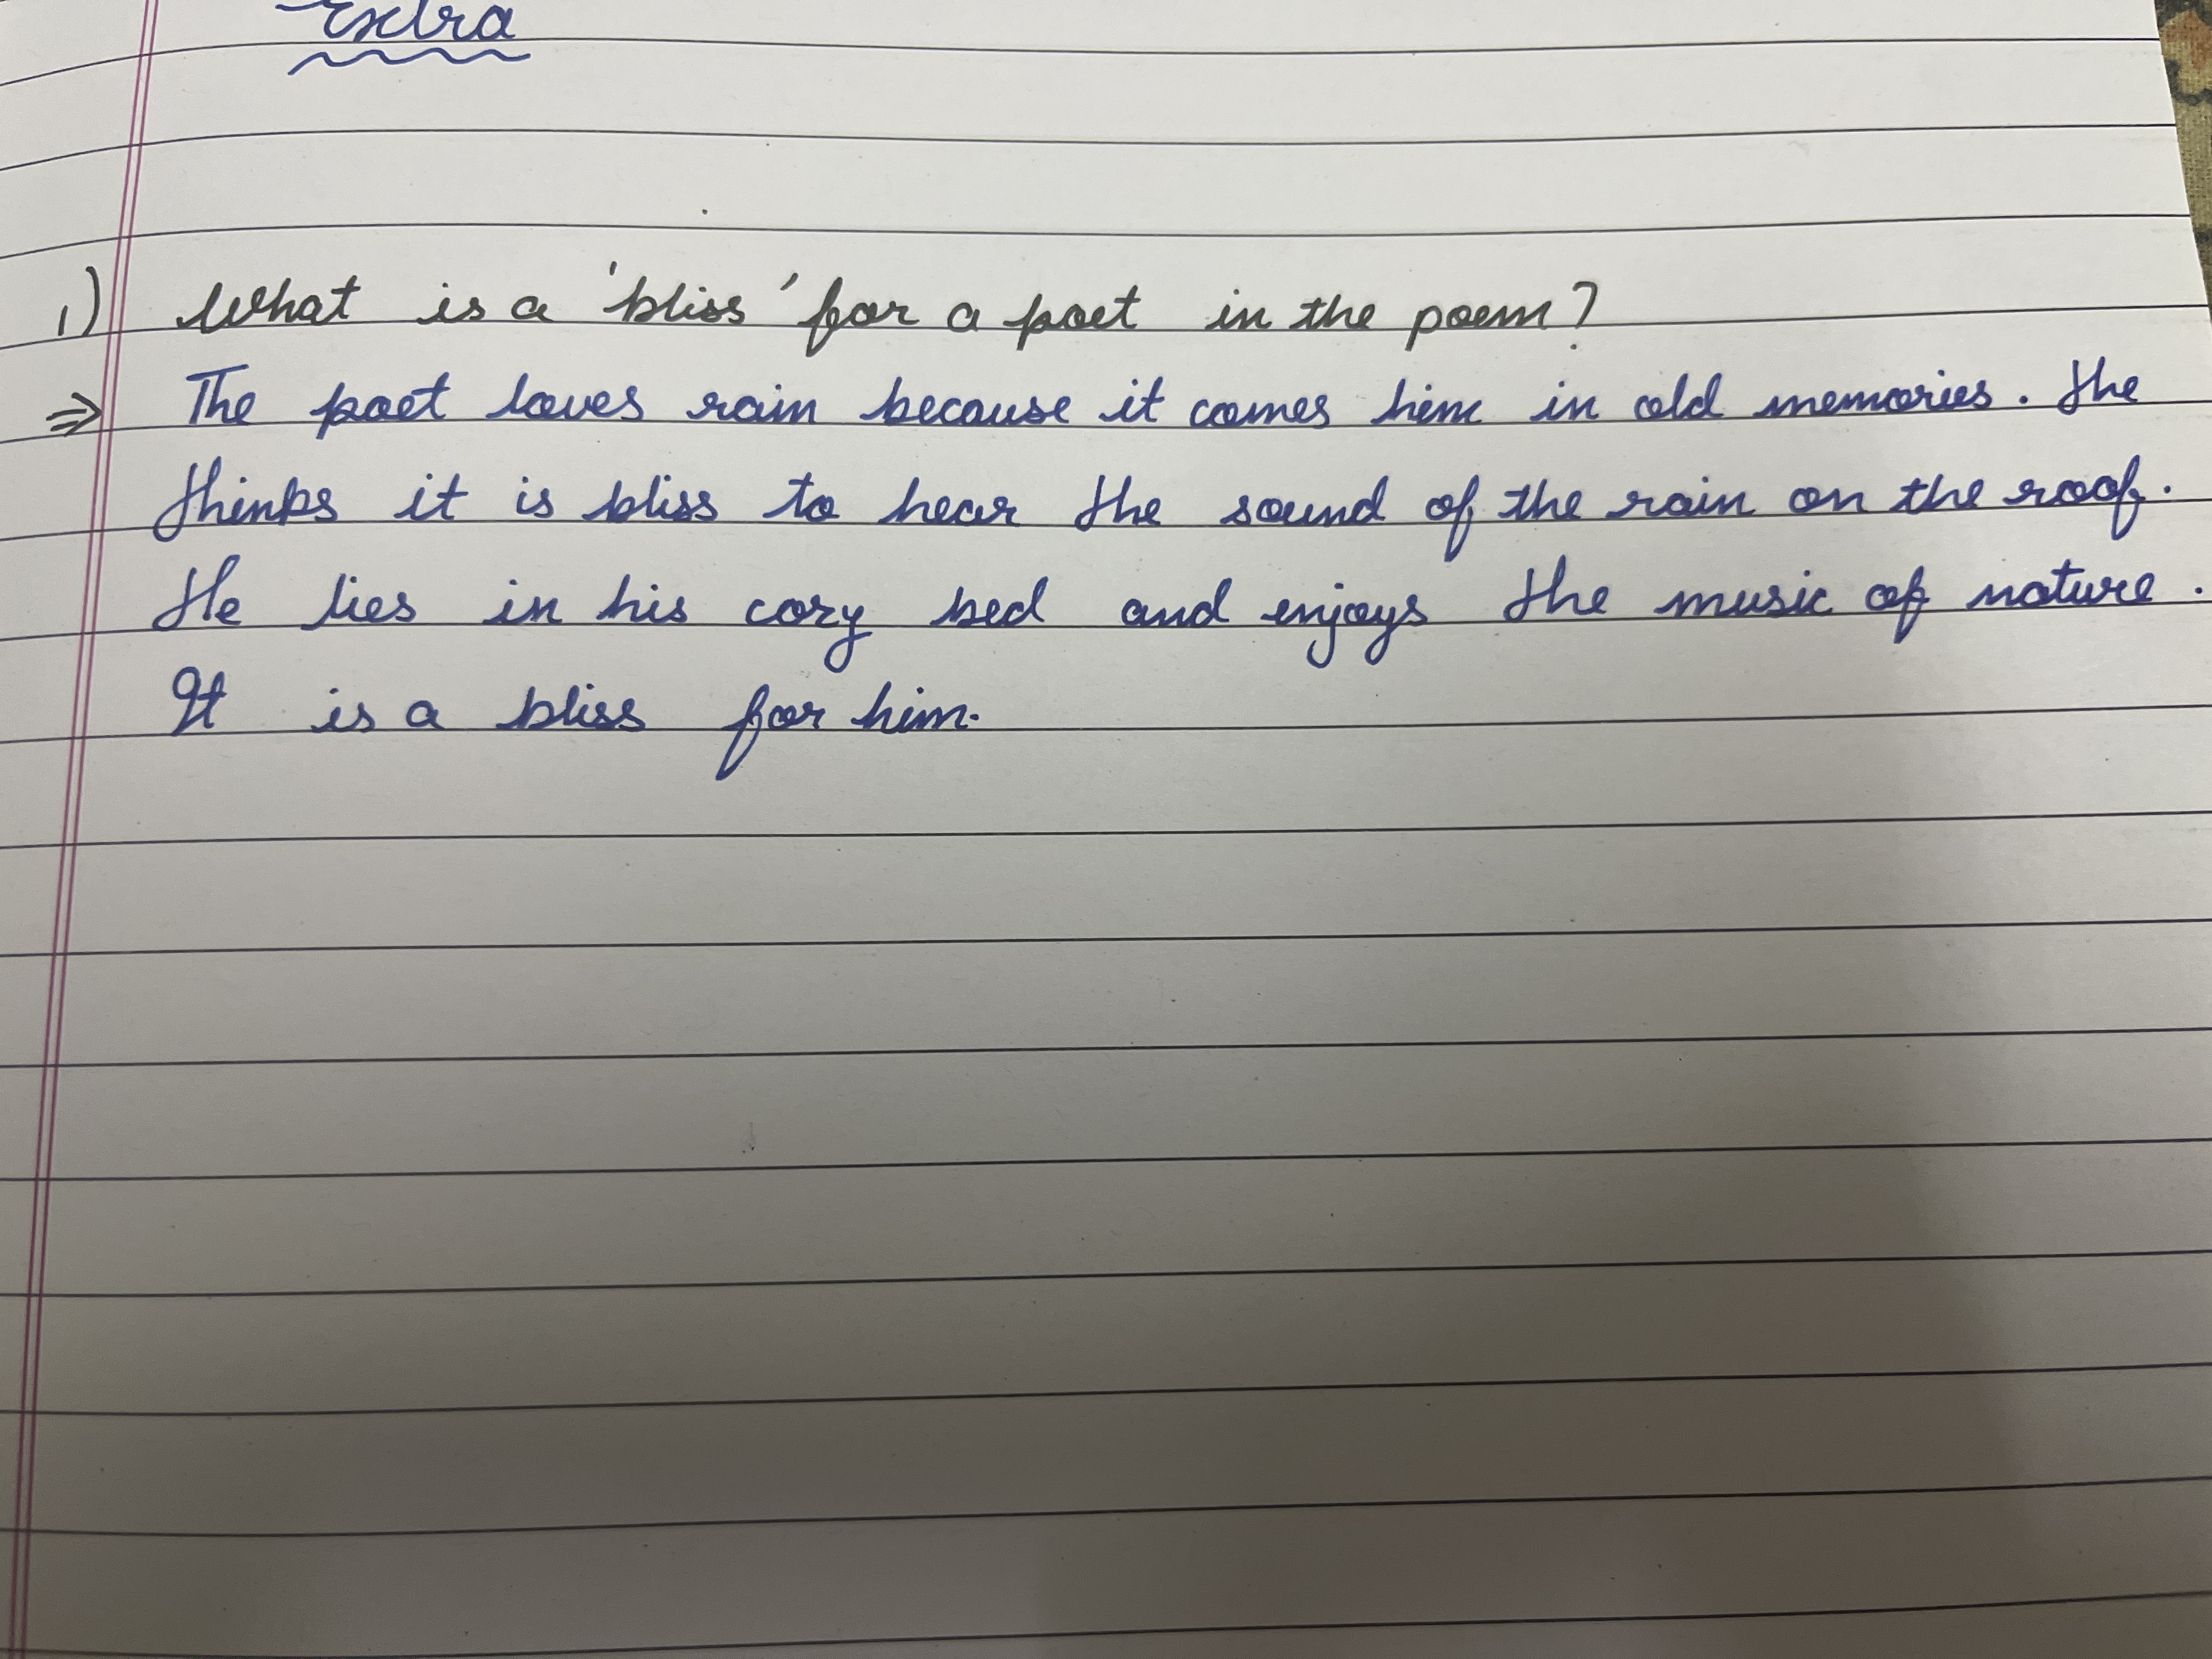 Extra
1) What is a 'bliss' for a poet in the poem?
⇒ The poet loves rain because it comes him in old memories. He
thinks it is bliss to hear the sound of the rain on the roof.
He lies in his cozy bed and enjoys the music of nature.
It is a bliss for him.